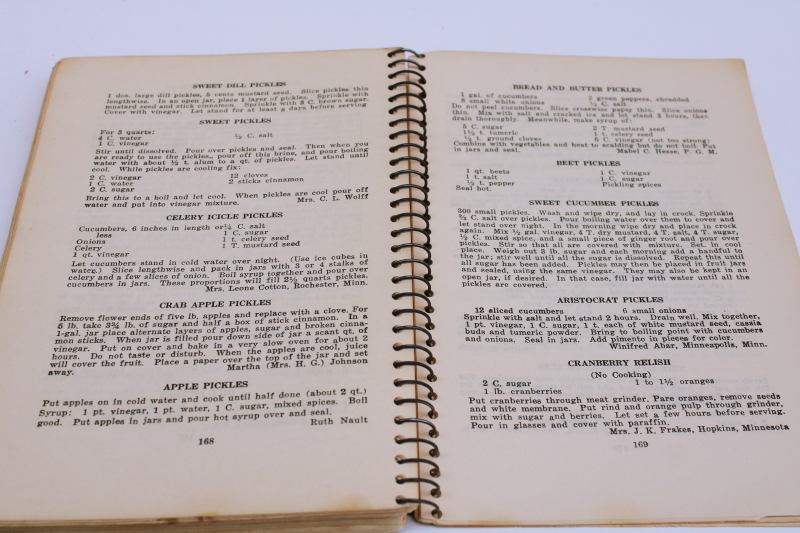 SWEET DILL PICKLES
1 doz. large dill pickles, 5 cents mustard seed. Slice pickles thin
lengthwise. In an open jar, place 1 layer of pickles. Sprinkle with
mustard seed and stick cinnamon. Sprinkle with 3 C. brown sugar.
Cover with vinegar. Let stand for at least days before serving
SWEET PICKLES
For 3 quarts:
4 C. water ½ C. salt
1 C. vinegar
Stir until dissolved. Pour over pickles and seal. Then when you
are ready to use the pickles, pour off this brine, and pour boiling
water with about ½ t. alum to a qt. of pickles. Let stand until
cool. While pickles are cooling fix:
2 C. vinegar 12 cloves
1 C. water 2 sticks cinnamon
2 C. sugar
Bring this to a boil and let cool. When pickles are cool pour off
water and put into vinegar mixture. Mrs. C. L. Wolff
CELERY ICICLE PICKLES
Cucumbers, 6 inches in length or ¼ C. salt
less 1 C. sugar
Onions 1 t. celery seed
Celery 1 T. mustard seed
1 qt. vinegar
Let cucumbers stand in cold water over night. (Use ice cubes in
water.) Slice lengthwise and pack in jars with 3 or 4 stalks of
celery and a few slices of onion. Boil syrup together and pour over
cucumbers in jars. These proportions will fill 2½ quarts pickles.
Mrs. Leone Cotton, Rochester, Minn.
CRAB APPLE PICKLES
Remove flower ends of five lb. apples and replace with a clove. For
5 lb. take 3¾ lb. of sugar and half a box of stick cinnamon. In a
1-gal. jar place alternate layers of apples, sugar and broken cinna-
mon sticks. When jar is filled pour down side of jar a scant qt. of
vinegar. Put on cover and bake in a very slow oven for about 2
hours. Do not taste or disturb. When the apples are cool, juice
will cover the fruit. Place a paper over the top of the jar and set
away. Martha (Mrs. H. G.) Johnson
APPLE PICKLES
Put apples on in cold water and cook until half done (about 2 qt.)
Syrup: 1 pt. vinegar, 1 pt. water, 1 C. sugar, mixed spices. Boil
good. Put apples in jars and pour hot syrup over and seal.
Ruth Nault
168
BREAD AND BUTTER PICKLES
1 gal. of cucumbers 2 green peppers, shredded
8 small white onions ½ C. salt
Do not peel cucumbers. Slice crosswise paper thin. Slice onions
thin. Mix with salt and cracked ice and let stand 3 hours, then
drain thoroughly. Meanwhile, make syrup of:
5 C. sugar 2 T. mustard seed
1½ t. tumeric 1½ t. celery seed
¼ t. ground cloves C. vinegar (not too strong)
Combine with vegetables and heat to scalding but do not boil. Put
in jars and seal. Mabel C. Hesse, P. G. M.
BEET PICKLES
1 qt. beets 1 C. vinegar
1 t. salt 1 C. sugar
½ t. pepper Pickling spices
Seal hot.
SWEET CUCUMBER PICKLES
300 small pickles. Wash and wipe dry, and lay in crock. Sprinkle
¾ C. salt over pickles. Pour boiling water over them to cover and
let stand over night. In the morning wipe dry and place in crock
again. Mix ½ gal. vinegar, 4 T. dry mustard, 4 T. salt, 4 T. sugar,
½ C. mixed spice, and a small piece of ginger root and pour over
pickles. Stir so that all are covered with mixture. Set in cool
place. Weigh out 3 lb. sugar and each morning add a handful to
the jar; stir well until all the sugar is dissolved. Repeat this until
all sugar has been added. Pickles may then be placed in fruit jars
and sealed, using the same vinegar. They may also be kept in an
open jar, if desired. In that case, fill jar with water until all the
pickles are covered.
ARISTOCRAT PICKLES
12 sliced cucumbers 6 small onions
Sprinkle with salt and let stand 2 hours. Drain well. Mix together,
1 pt. vinegar, 1 C. sugar, 1 t. each of white mustard seed, cassia
buds and tumeric powder. Bring to boiling point with cucumbers
and onions. Seal in jars. Add pimento in pieces for color.
Winifred Absr, Minneapolis, Minn.
CRANBERRY RELISH
(No Cooking)
2 C. sugar 1 to 1½ oranges
1 lb. cranberries
Put cranberries through meat grinder. Pare oranges, remove seeds
and white membrane. Put rind and orange pulp through grinder,
mix with sugar and berries. Let set a few hours before serving.
Pour in glasses and cover with paraffin.
Mrs. J. K. Frakes, Hopkins, Minnesota
169